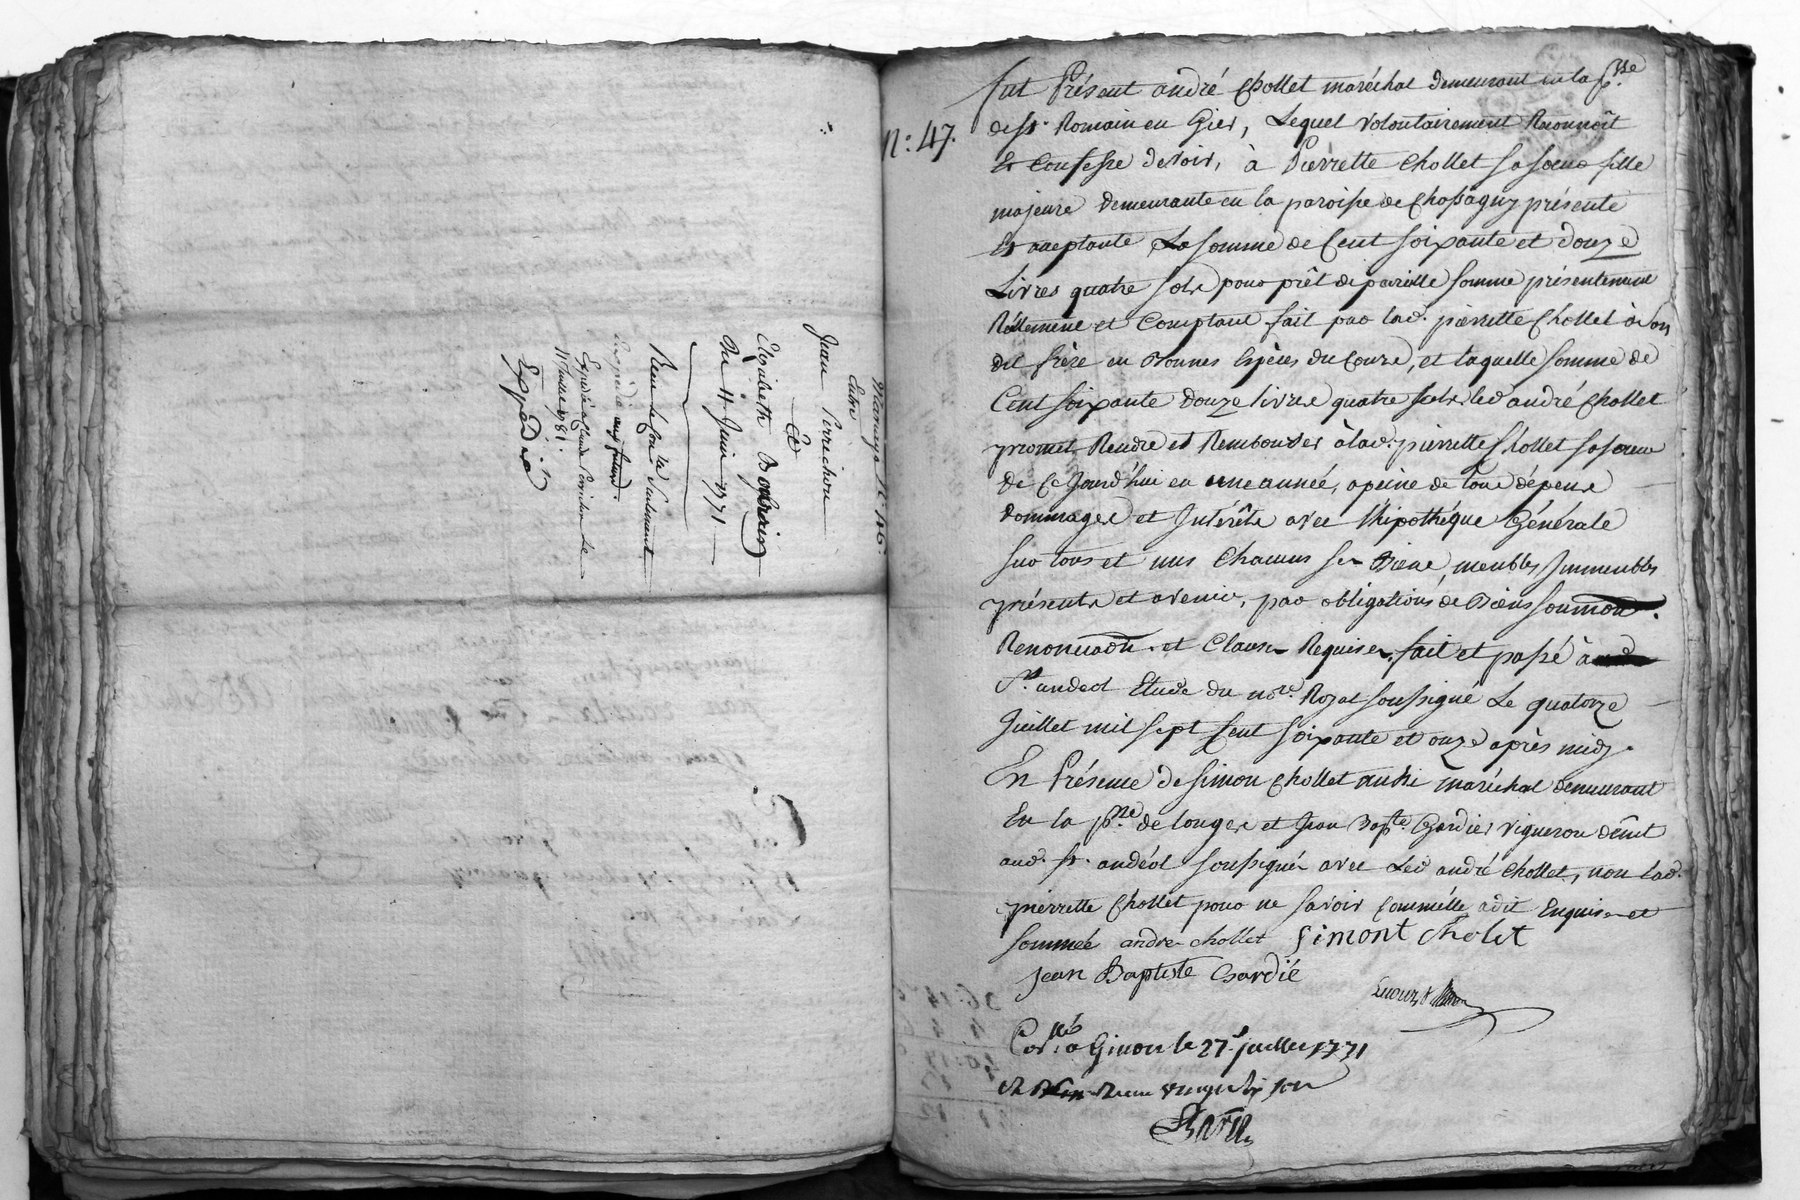 Mariage N.° 46.
Entre
Jean Perrichon
Et
Elizabeth Bonherin
Du 11 Juin 1771
Expédié
N.° 47.
fut Présent andré Chollet maréchal demeurant en la p.sse
de st. Romain en Gier, Lequel volontairement Reconnoît
Et Confesse devoir, à Pierrette Chollet sa sœur fille
majeure demeurante en la paroisse de Chassagny présente
Et acceptante La somme de Cent soixante et douze
Livres quatre sols pour prêt de pareille somme présentement
Réellement et Comptant fait par lad. pierrette Chollet à son
dit frère en Bonnes Espèces du Cours, et laquelle somme de
Cent soixante douze livres quatre sols led andré Chollet
promet Rendre et Rembourser à lad. pierrette Chollet sa sœur
de Ce Jourd'hui en une année, apeine de tous dépens
dommages et Intérêts avec l'hipothéque Générale
sur tous et uns Chacuns ses Biens, meubles Immeubles
présents et avenir, par obligations de Biens soumon.
Renonciaôn. et Clauses Requises, fait et passé à
St. andeol Etude du no.re Royal soussigné Le quatorze
Juillet mil sept Cent soixante et onze après midy.
En Présence de simon Chollet aussi maréchal demeurant
En la p.sse de Longes et Jean Bap.te Gardier vigneron deme.t
aud. st. andéol soussignés avec Led andré Chollet, non lad.
pierrette Chollet pour ne savoir Comm'elle a dit Enquise et
sommée andre chollet simont cholet
Jean Baptiste Gardié
Con.lé a Givors le 27 juillet 1771